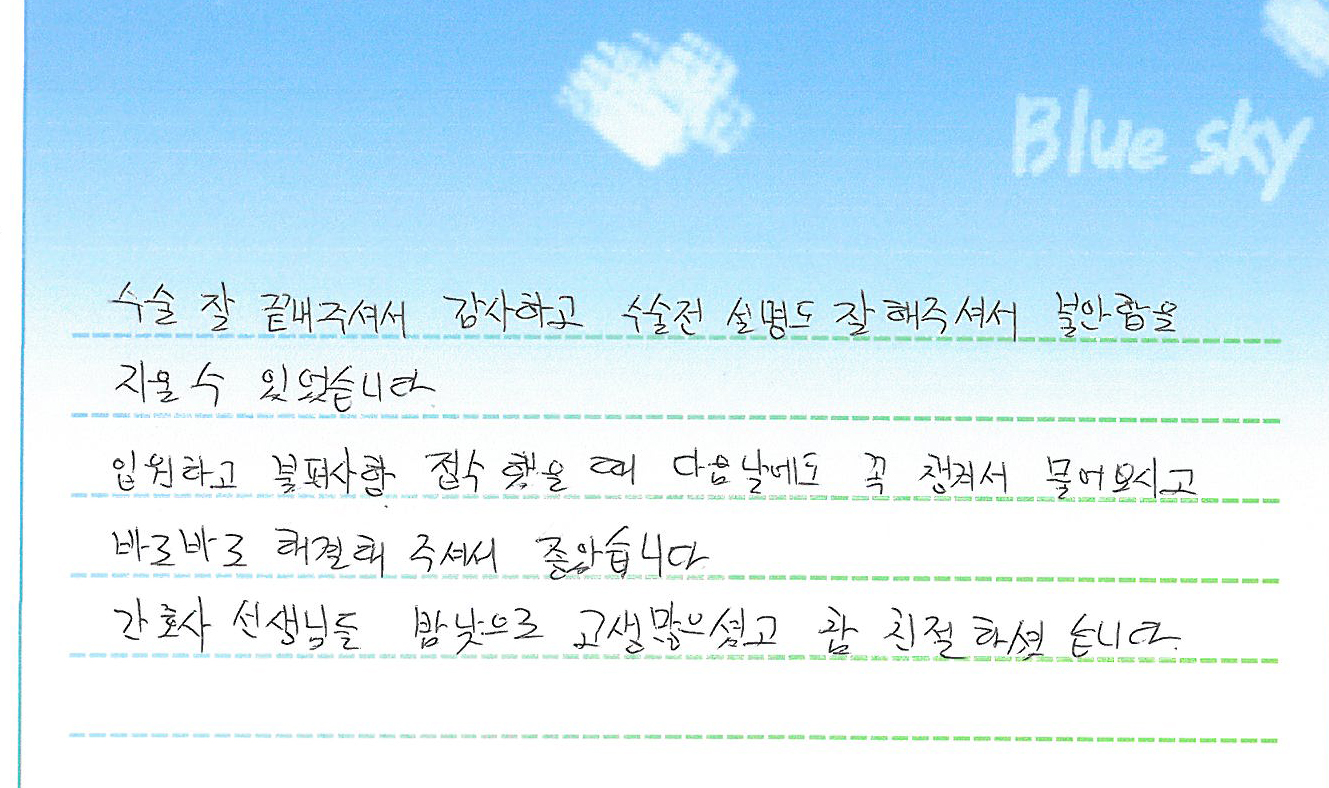 Blue sky
수술 잘 끝내주셔서 감사하고 수술전 설명도 잘해주셔서 불안함을
지울 수 있었습니다.
입원하고 불펴사항 접수 했을 때 다음날에도 꼭 챙겨서 물어보시고
바로바로 해결해 주셔서 좋았습니다.
간호사 선생님들 밤낮으로 고생많으셨고 참 친절하셨습니다.